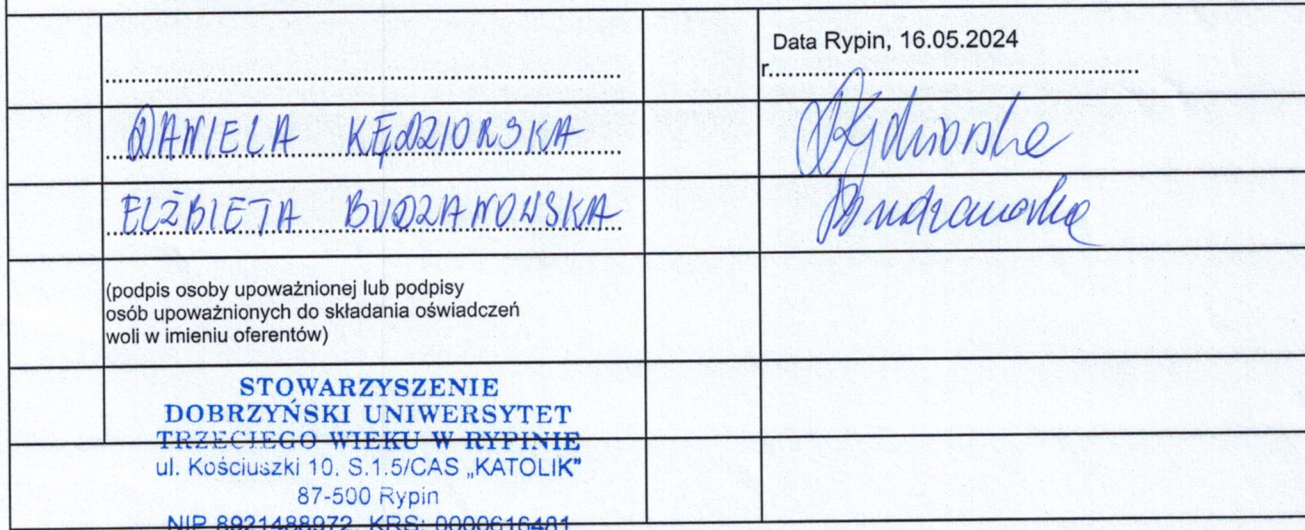 Data Rypin, 16.05.2024
r.....................................................
.....................................................
DANIELA KĘDZIORSKA
Kędziorska
ELŻBIETA BUDZANOWSKA
Budzanowska
(podpis osoby upoważnionej lub podpisy
osób upoważnionych do składania oświadczeń
woli w imieniu oferentów)
STOWARZYSZENIE
DOBRZYŃSKI UNIWERSYTET
TRZECIEGO WIEKU W RYPINIE
ul. Kościuszki 10, S.1.5/CAS „KATOLIK"
87-500 Rypin
NIP 8921488972 KRS: 0000616481